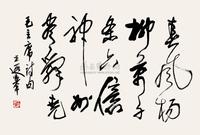 春风杨
柳万千
条六亿
神州
尽舜尧
毛主席诗句